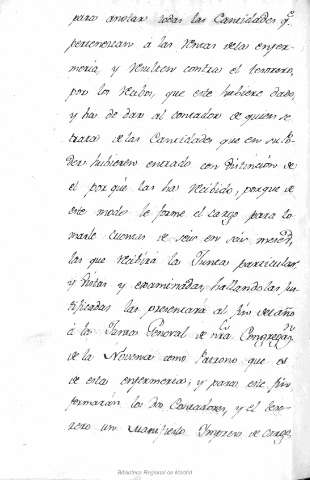 para anotar todas las Cantidades q.e
pertenezcan á las Rentas de la enfer-
meria, y resulten contra el tesorero,
por los recibos, que este hubiere dado,
y ha de dar al contador de quien se
trata de las Cantidades que en su Po-
der hubieren entrado con distincion de
el por que las ha recibido, porque de
este modo le forme el cargo para to-
marle cuentas de seis en seis meses,
las que recibirá la Junta particular,
y vistas y examinadas, hallandolas jus-
tificadas las presentará al fin del año
á la Junta General de nra Congregaz.on
de la Novena como Patrono que es
de estas enfermerias; y para este fin
formarán los dos Contadores, y el teso-
rero un Manifiesto Impreso de cargo,
Biblioteca Regional de Madrid